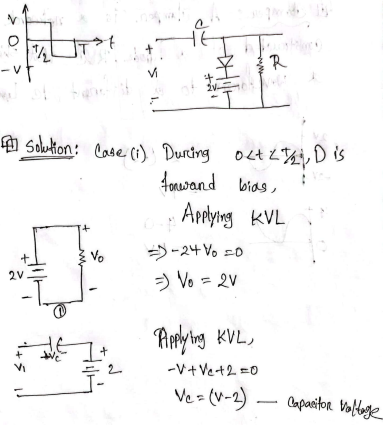 V
0
T/2
T
t
-V
C
+
Vi
-
+
2V
-
R
Solution: Case (i) During 0<t<T/2, D is
forward bias,
Applying KVL
+
2V
-
+
Vo
-
=) -2+Vo =0
=) Vo = 2V
+
Vi
-
+Vc
+
2
-
Applying KVL,
-V+Vc+2 =0
Vc = (V-2) — Capacitor Voltage